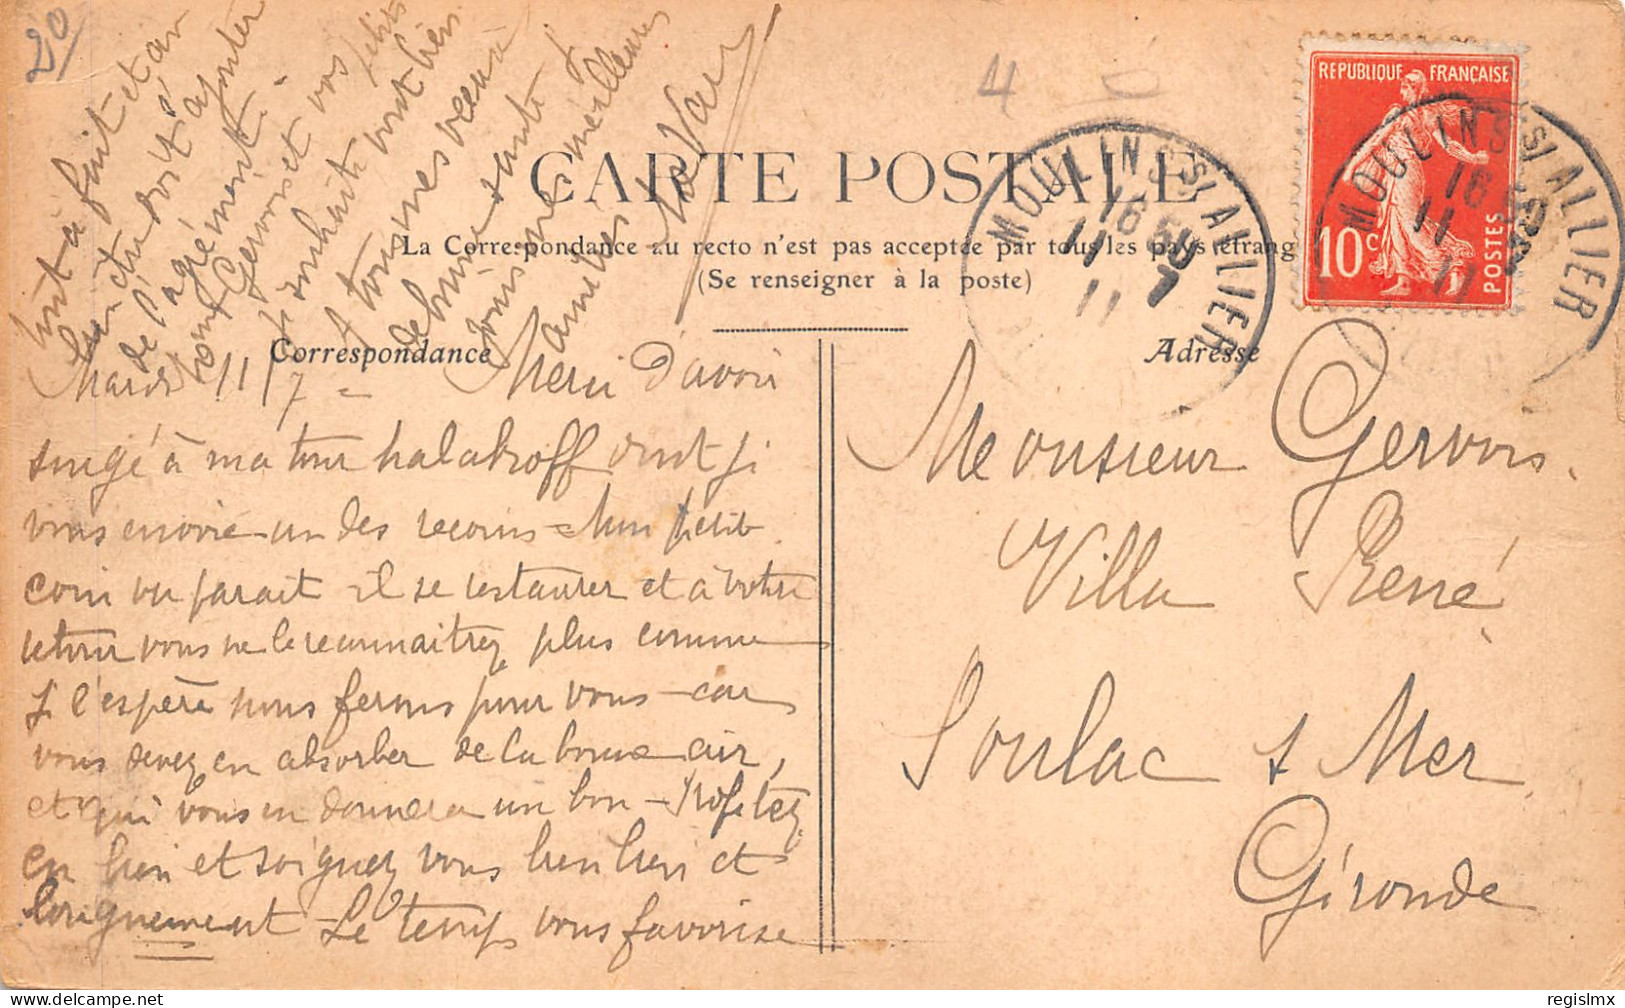 20
4
CARTE POSTALE
La Correspondance au recto n'est pas acceptée par tous les pays étrang
(Se renseigner à la poste)
Correspondance
Adresse
REPUBLIQUE FRANÇAISE
10c
POSTES
MOULINS S/ ALLIER
16 50
11 7
11
MOULINS S/ ALLIER
16 50
11
11
Mardi 11/7 = Merci d'avoir
songé à ma tour Malakoff dont je
vous envoie un des recoins - Mon petit
coin va parait-il se restaurer et à votre
retour vous ne le reconnaitrez plus comme
je l'espère nous ferons pour vous - car
vous devez en absorber de la bonne air,
et qui vous en donnera un bon - Profitez
en bien et soignez vous bien bien et
longuement - Le temps vous favorise
tout à fait et an
bien être doit s'ajouter
de l'agrément.
Gervois et vos petits
souhait vont bien
A tous mes vœux
de bonne santé
meilleures
amitiés
Monsieur Gervois.
Villa René
Soulac s Mer
Gironde
regislmx